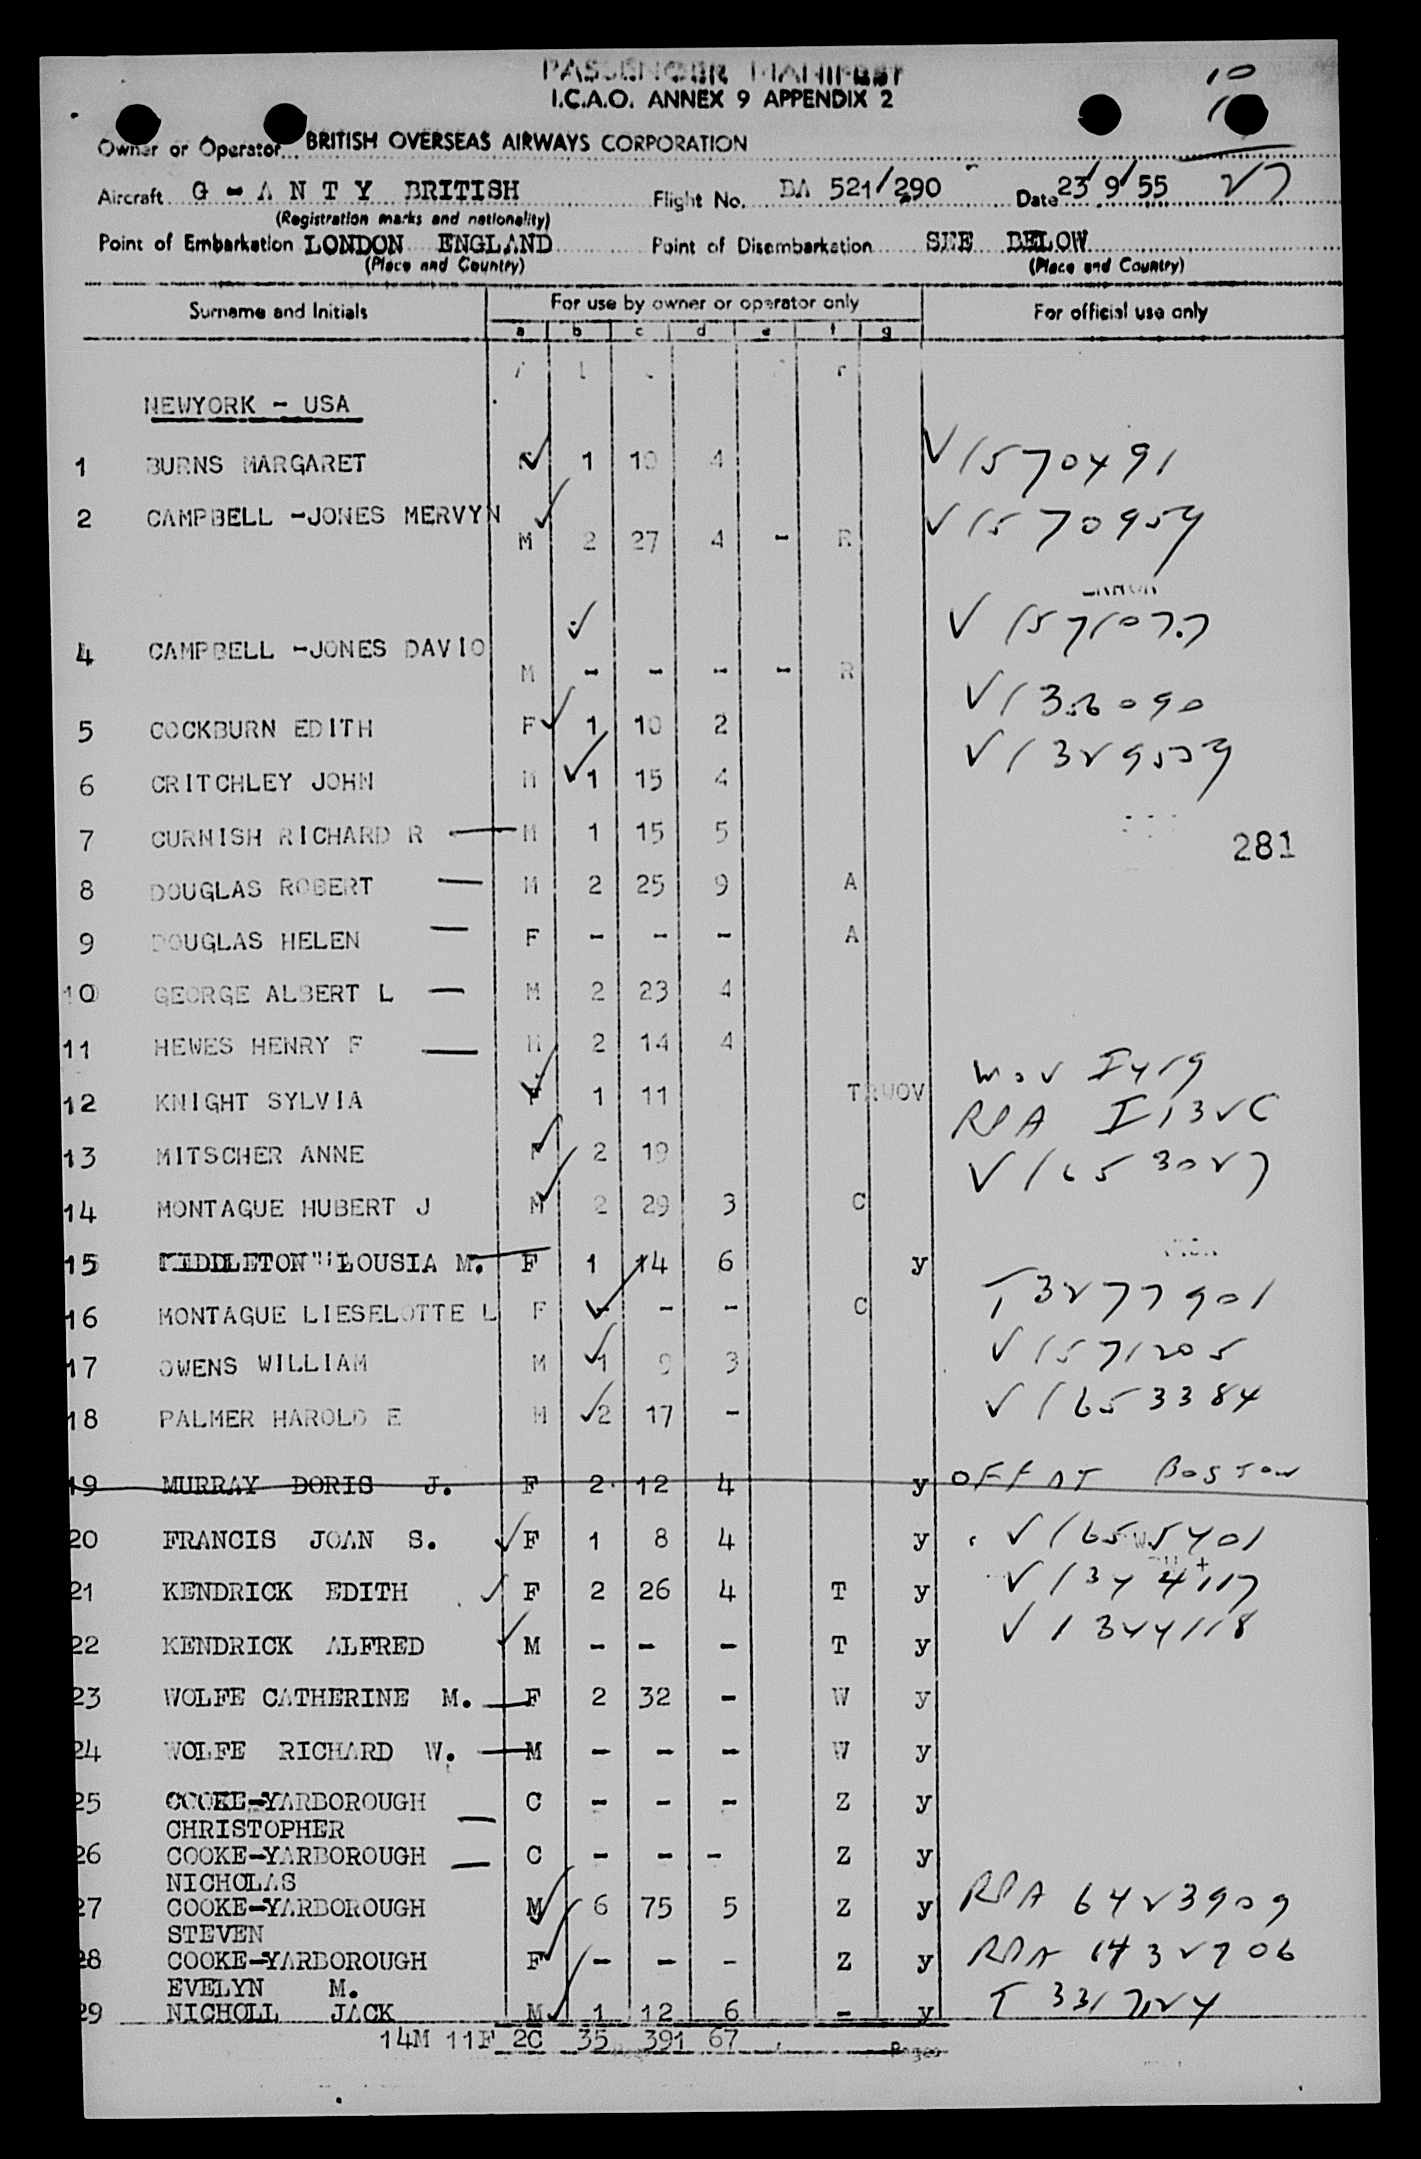 PASSENGER MANIFEST
I.C.A.O. ANNEX 9 APPENDIX 2
10
Owner or Operator BRITISH OVERSEAS AIRWAYS CORPORATION
Aircraft G - A N T Y BRITISH Flight No. BA 521/290 Date 23/9/55 27
(Registration marks and nationality)
Point of Embarkation LONDON ENGLAND Point of Disembarkation SEE BELOW
(Place and Country) (Place and Country)
Surname and Initials For use by owner or operator only For official use only
a b c d e f g
NEWYORK - USA
1 BURNS MARGARET 1 10 4 V1570491
2 CAMPBELL -JONES MERVYN
M 2 27 4 - R V1570954
4 CAMPBELL -JONES DAVID V 1571077
M - - - - R
5 COCKBURN EDITH F 1 10 2 V1326090
6 CRITCHLEY JOHN M 1 15 4 V1329539
7 CURNISH RICHARD R — M 1 15 5
281
8 DOUGLAS ROBERT — M 2 25 9 A
9 DOUGLAS HELEN — F - - - A
10 GEORGE ALBERT L — M 2 23 4
11 HEWES HENRY F — M 2 14 4
12 KNIGHT SYLVIA F 1 11 TRWOV WOV I419
13 MITSCHER ANNE F 2 19 RPA I132C
14 MONTAGUE HUBERT J M 2 29 3 C V1653027
15 MIDDLETON LOUSIA M. F 1 14 6 y
16 MONTAGUE LIESELOTTE L F - - - C T3277901
17 OWENS WILLIAM M 1 9 3 V1571205
18 PALMER HAROLD E M 2 17 - V1653384
19 MURRAY DORIS J. F 2 12 4 y OFF AT BOSTON
20 FRANCIS JOAN S. F 1 8 4 y V1655401
21 KENDRICK EDITH F 2 26 4 T y V1344117
22 KENDRICK ALFRED M - - - T y V1344118
23 WOLFE CATHERINE M. — F 2 32 - W y
24 WOLFE RICHARD W. — M - - - W y
25 COOKE-YARBOROUGH — C - - - Z y
CHRISTOPHER
26 COOKE-YARBOROUGH — C - - - Z y
NICHOLAS
27 COOKE-YARBOROUGH M 6 75 5 Z y RPA 6423909
STEVEN
28 COOKE-YARBOROUGH F - - - Z y RPA 1432706
EVELYN M.
29 NICHOLL JACK M 1 12 6 - y T 3317124
14M 11F 2C 35 391 67 Pages